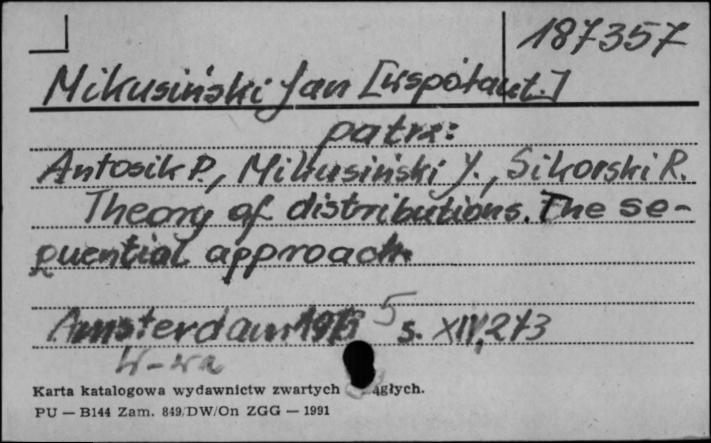 187357
Mikusiński Jan [współaut.]
patrz:
Antosik P., Mikusiński J., Sikorski R.
Theory of distributions. The se-
quential approach
Amsterdam 1973 5 s. XIV, 273
W-wa
Karta katalogowa wydawnictw zwartych głych.
PU — B144 Zam. 849/DW/On ZGG — 1991